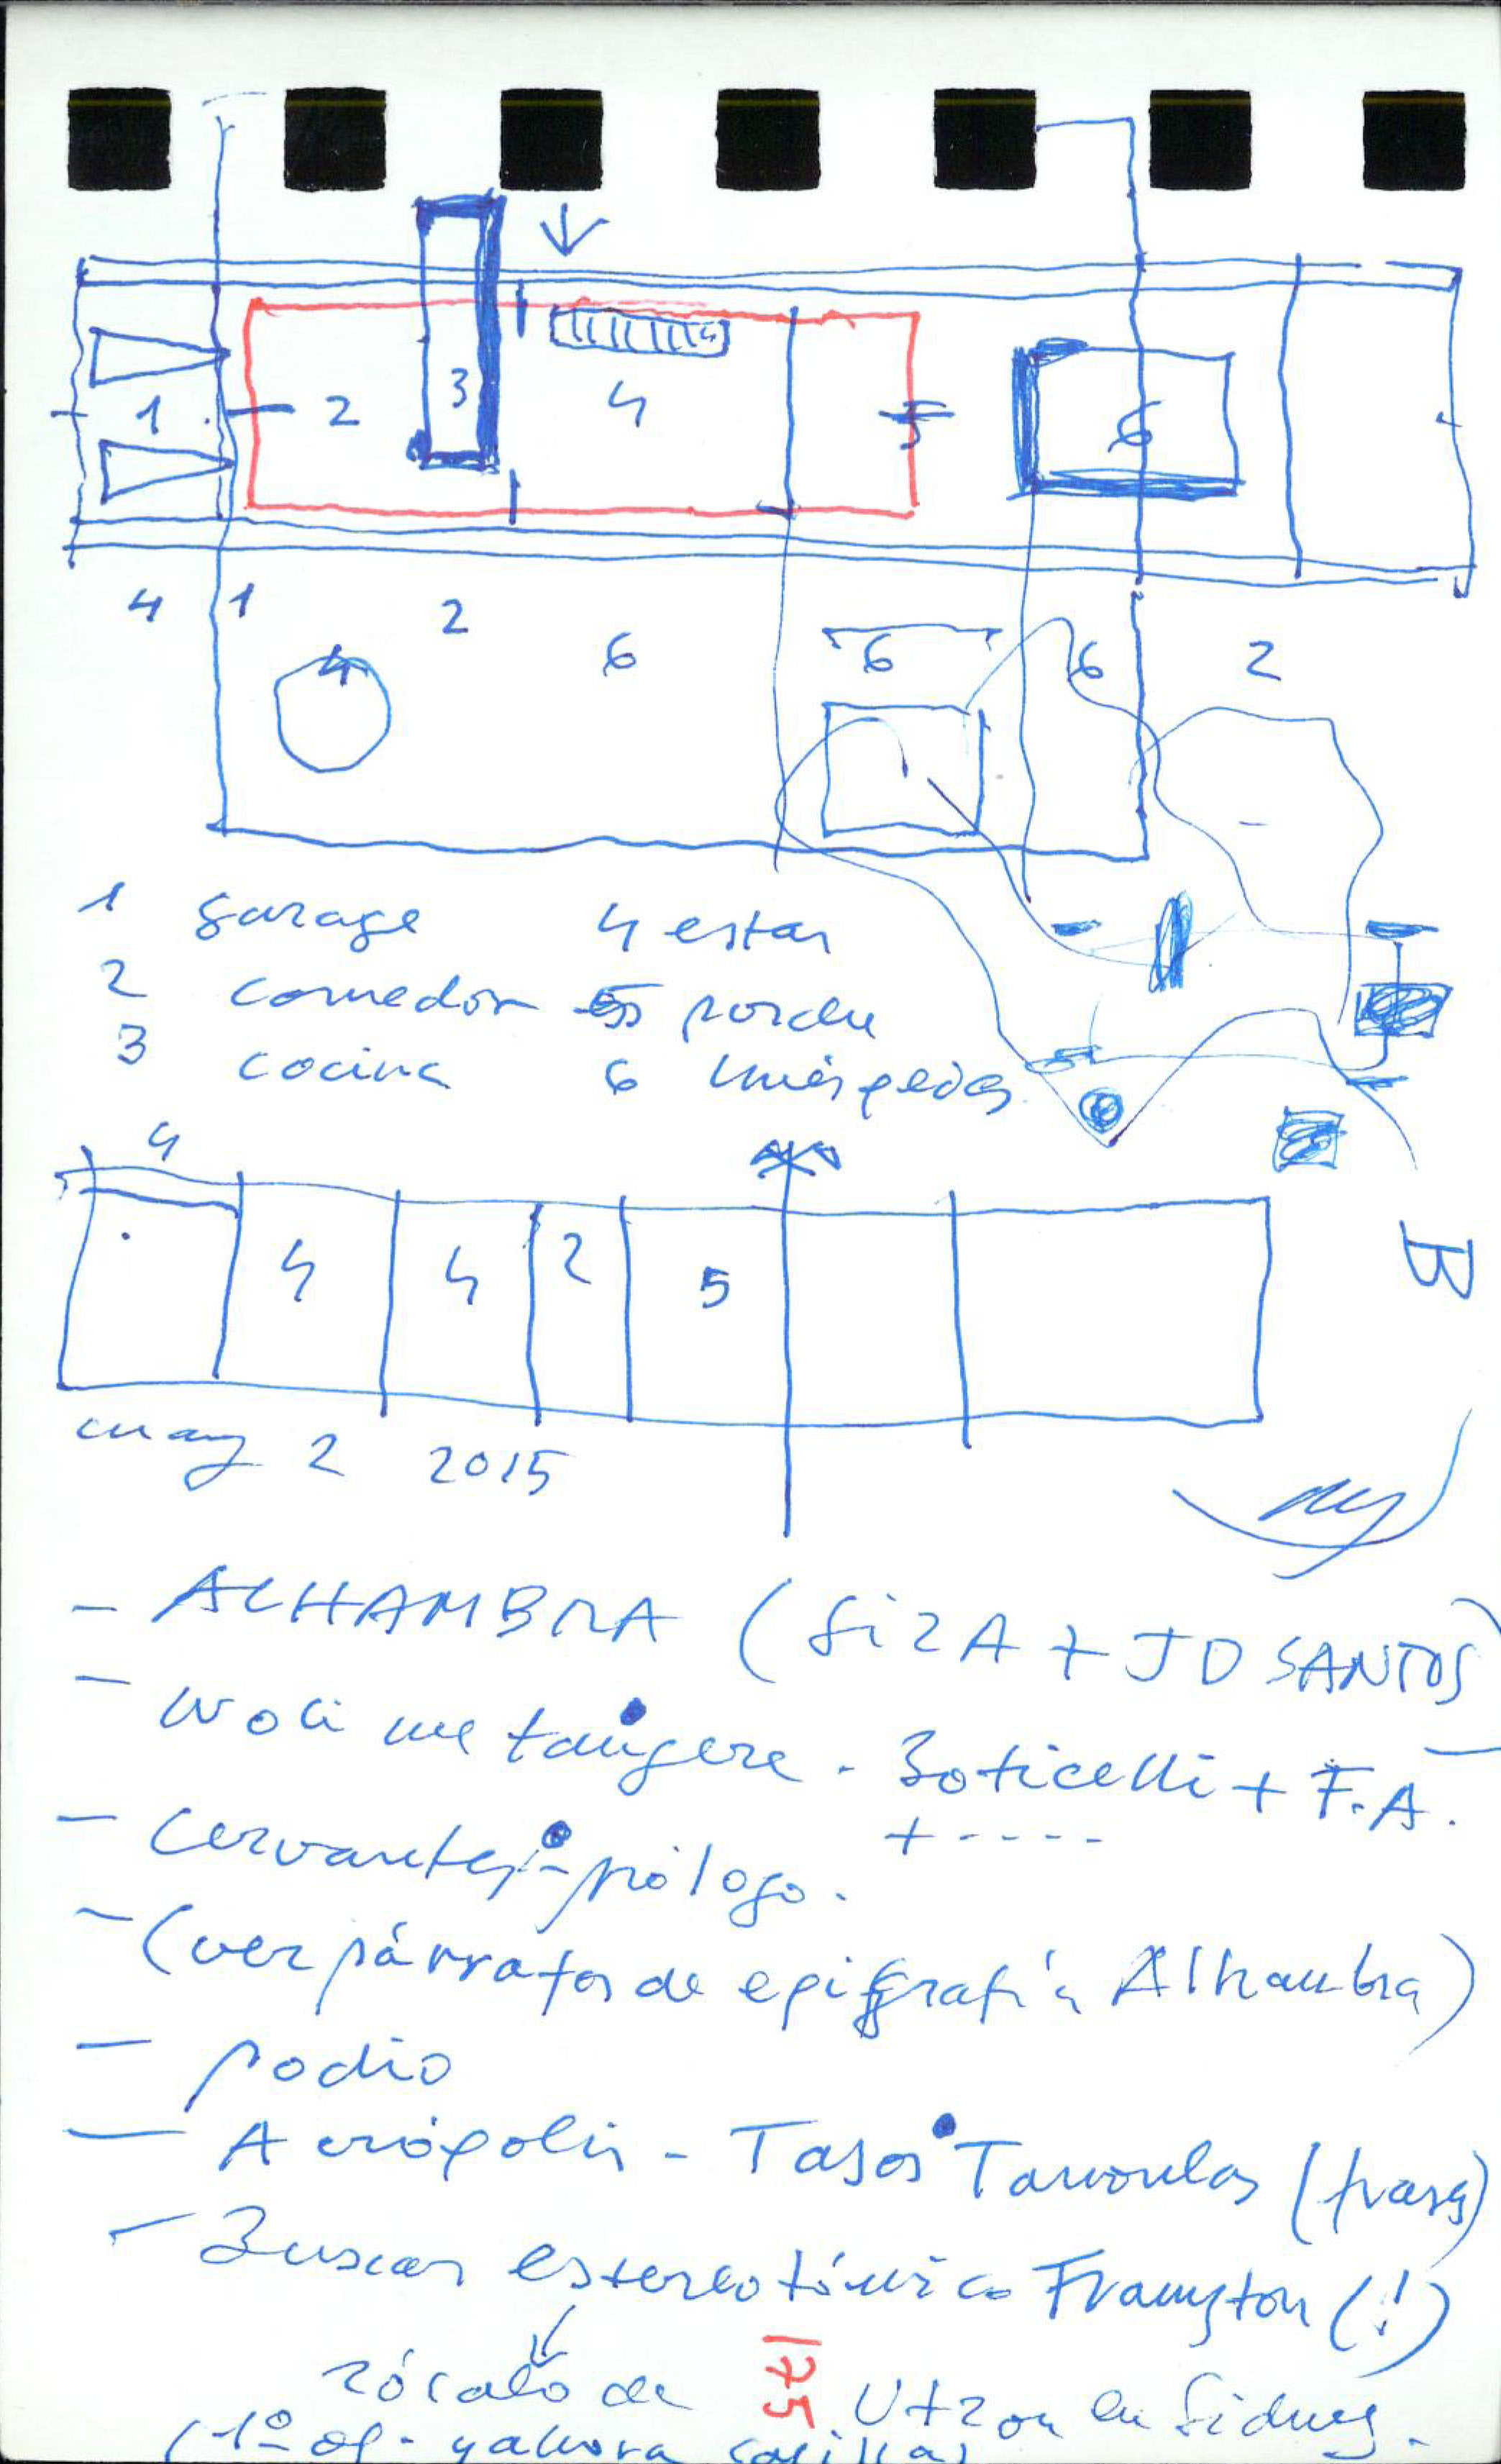 1 2 3 4 5 6
4 1 2 6 6 6 2
4
1 garage 4 estar
2 comedor 5 porche
3 cocina 6 huéspedes
4
4 4 2 5
B
may 2 2015
- ALHAMBRA (SiZA + JD SANTOS)
- Noli me tangere. Boticelli + F.A.
+ ----
- Cervantes - prólogo.
- (ver párrafos de epigrafía Alhambra)
- podio
- Acrópolis - Tasos Tanoulas (frase)
- Buscar estereotómico Frampton (!)
zócalo de Utzon en Sidney.
175
(1º of. y ahora capilla)